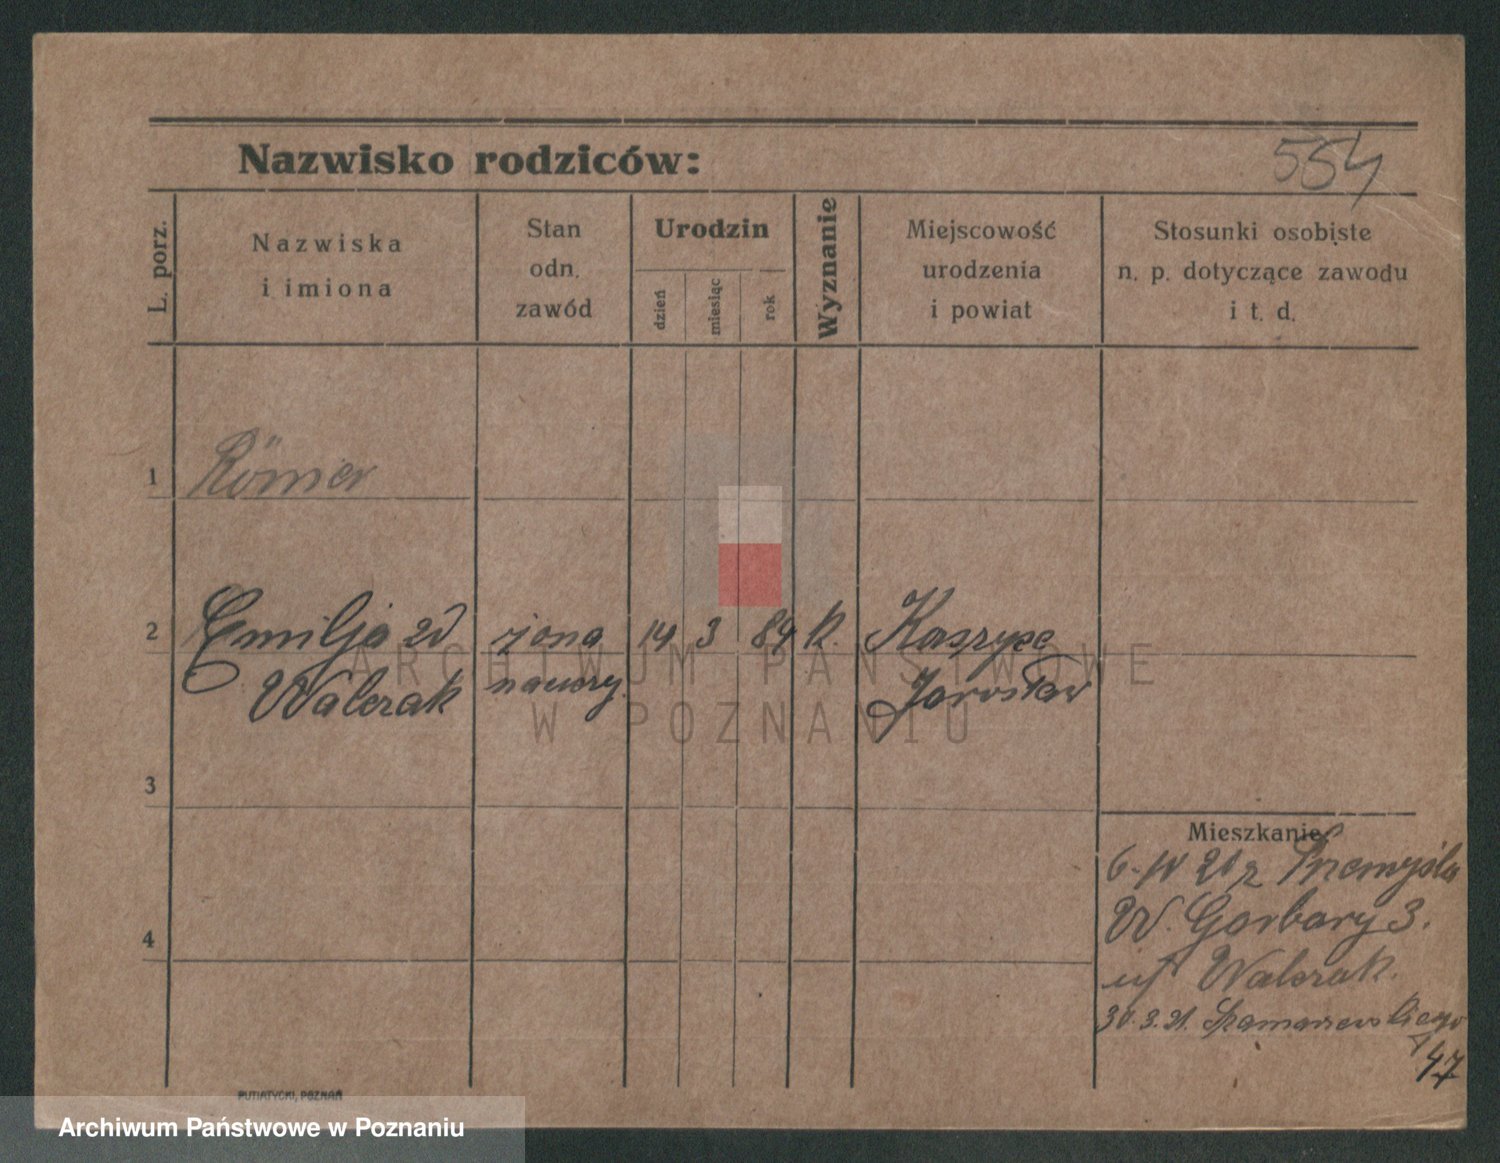 Nazwisko rodziców:
554
L. porz.
Nazwiska
i imiona
Stan
odn.
zawód
Urodzin
dzień
miesiąc
rok
Wyznanie
Miejscowość
urodzenia
i powiat
Stosunki osobiste
n. p. dotyczące zawodu
i t. d.
1 Römer
2 Emilja zd żona 14 3 84 k.
Walczak nauczy. Jarosław
3
Mieszkanie
6. IV 21 z Przemyśla
W. Garbary 3.
Walczak.
4
30.3.21. Szamarzewskiego
47
ARCHIWUM PAŃSTWOWE
W POZNANIU
PUTIATYCKI, POZNAŃ
Archiwum Państwowe w Poznaniu